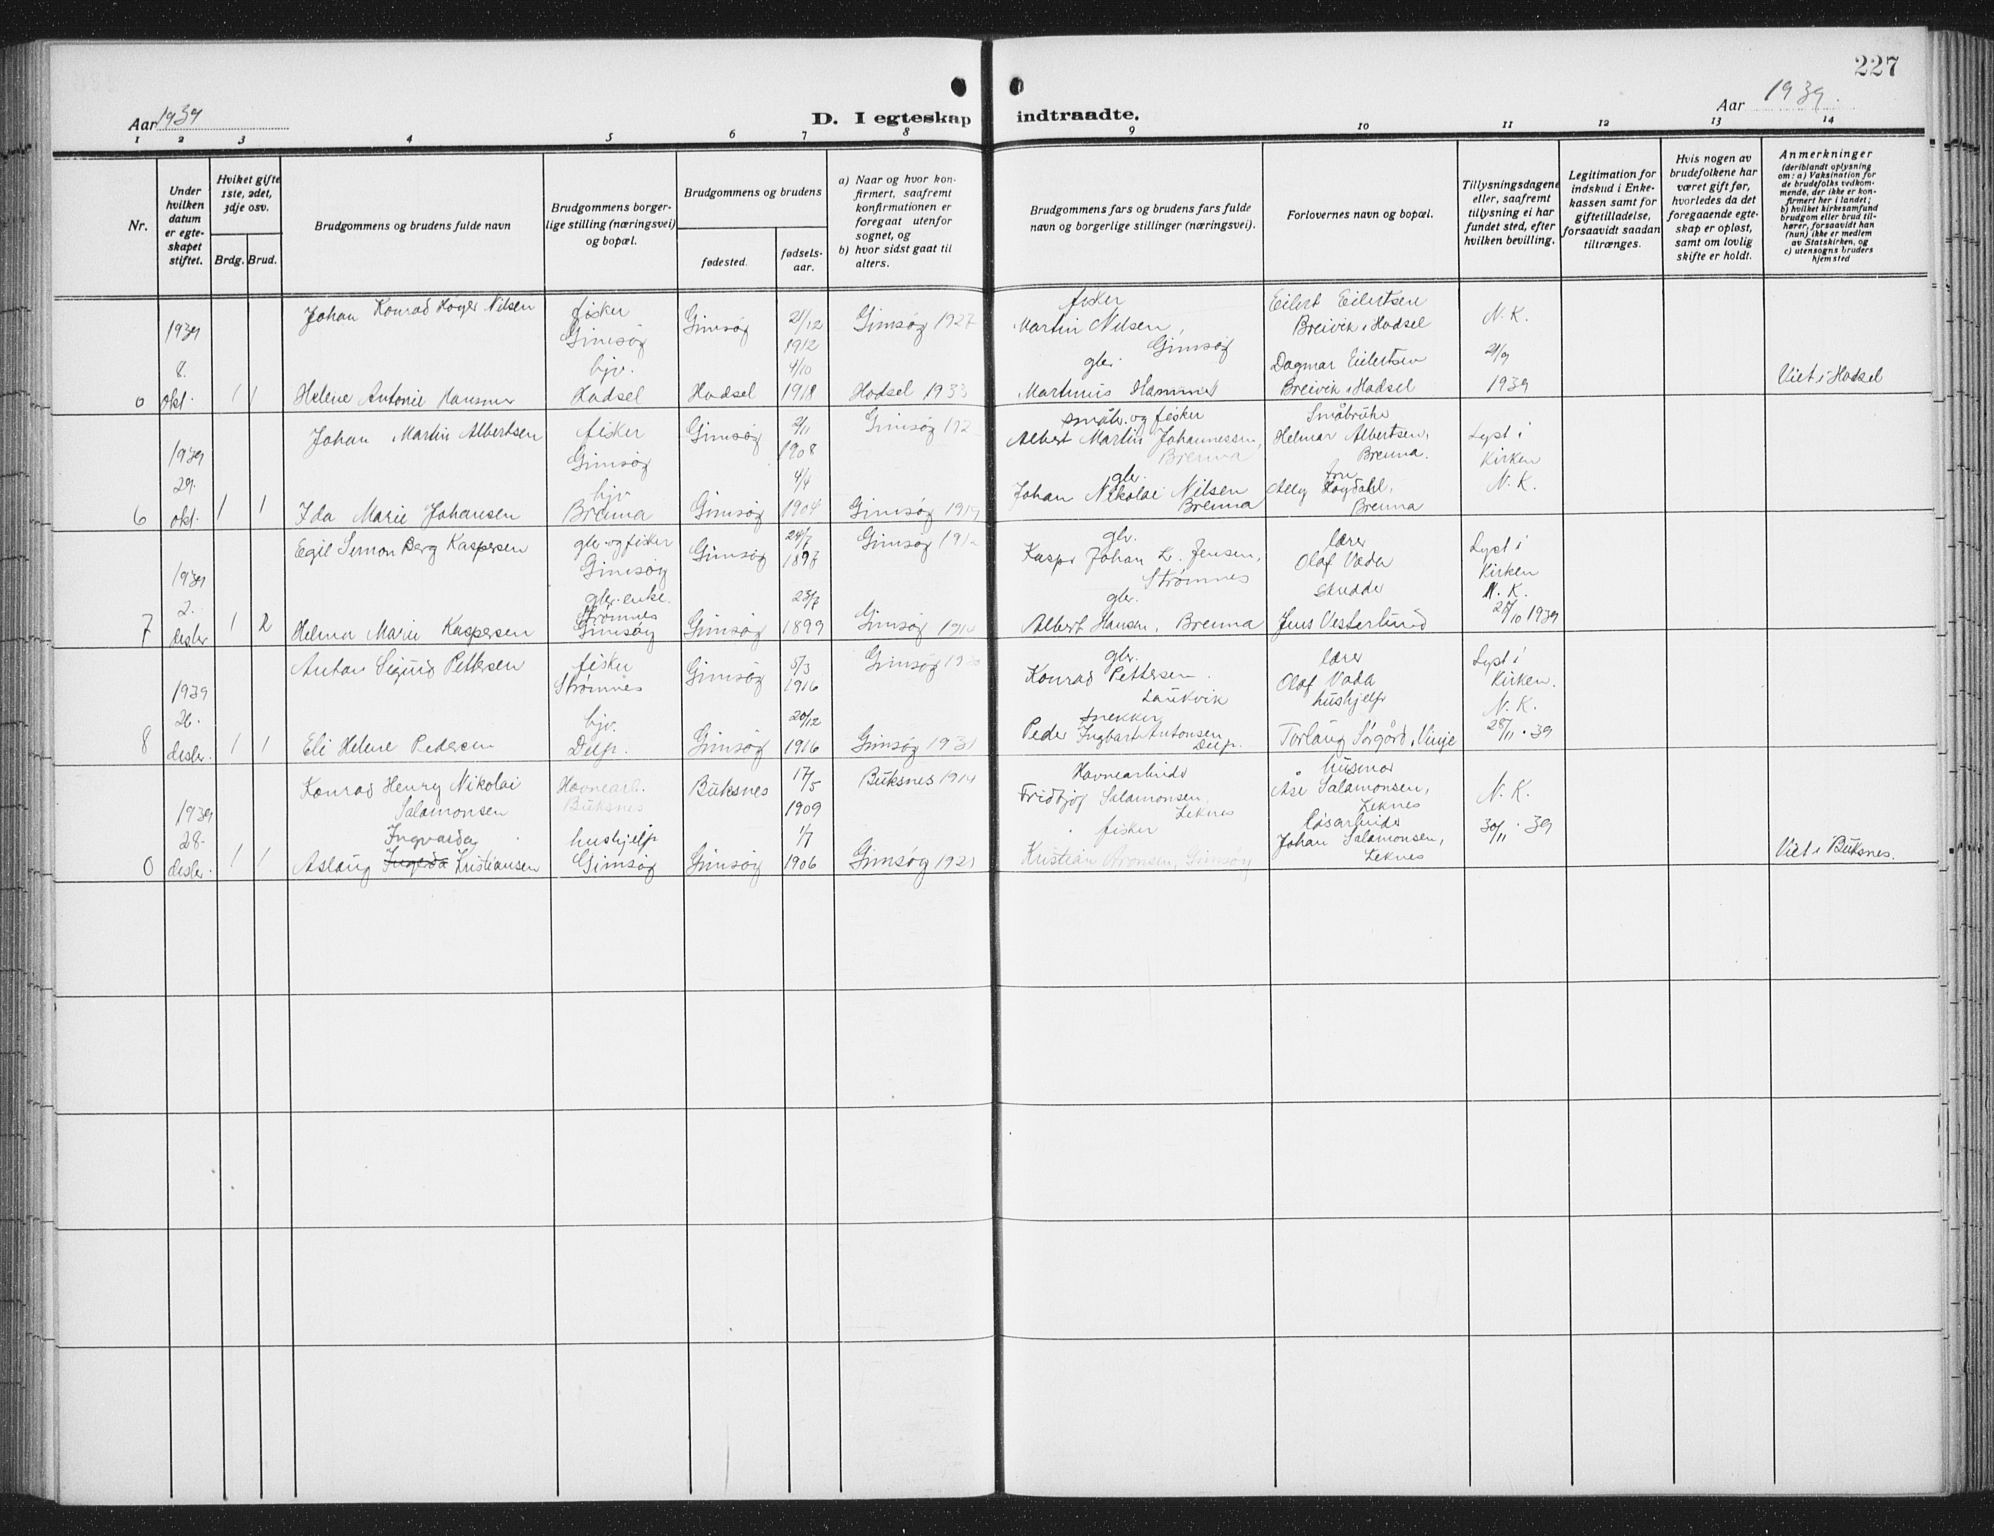 227
Aar 1939
D. I egteskap indtraadte.
Aar 1939.
1 2 3 4 5 6 7 8 9 10 11 12 13 14
Nr.
Under hvilken datum er egteskapet stiftet.
Hvilket gifte 1ste, 2det, 3dje osv.
Brdg. Brud.
Brudgommens og brudens fulde navn
Brudgommens borgerlige stilling (næringsvei) og bopæl.
Brudgommens og brudens
fødested.
fødselsaar.
a) Naar og hvor konfirmert, saafremt konfirmationen er foregaat utenfor sognet, og
b) hvor sidst gaat til alters.
Brudgommens fars og brudens fars fulde navn og borgerlige stillinger (næringsvei).
Forlovernes navn og bopæl.
Tillysningsdagene eller, saafremt tillysning ei har fundet sted, efter hvilken bevilling.
Legitimation for indskud i Enkekassen samt for giftetilladelse, forsaavidt saadan tiltrænges.
Hvis nogen av brudefolkene har været gift før, hvorledes da det foregaaende egteskap er opløst, samt om lovlig skifte er holdt.
Anmerkninger
(deriblandt oplysning om: a) Vaksination for de brudefolks vedkommende, der ikke er konfirmert her i landet; b) hvilket kirkesamfund brudgom eller brud tilhører, forsaavidt han (hun) ikke er medlem av Statskirken, og c) utensogns bruders hjemsted
0 1939 8. okt. 1 1
Johan Konrad Hoger Nilsen fisker Gimsøy Gimsøy 21/12 1912 Gimsøy 1927
fisker Martin Nilsen, Gimsøy
Eilert Eilertsen Breivik i Hadsel
N.K. 21/9 1939
Helene Antonie Hammer hjv. Hadsel Hadsel 4/10 1918 Hadsel 1933
gbr. Martinus Hammer
Dagmar Eilertsen Breivik i Hadsel
Viet i Hadsel
6 1939 29. okt. 1 1
Johan Martin Albertsen fisker Gimsøy Gimsøy 2/11 1908 Gimsøy 192
småbr. og fisker Albert Martin Johannessen, Brenna
Småbruker Helmar Albertsen, Brenna.
Lyst i Kirken N.K.
Ida Marie Johansen hjv. Brenna Gimsøy 4/4 1904 Gimsøy 1919
gbr. Johan Nikolai Nilsen Brenna
fru Høgdahl, Brenna
7 1939 2. desbr 1 2
Egil Simon Berg Kaspersen gbr. og fisker Gimsøy Gimsøy 24/7 1897 Gimsøy 1912
gbr. Kaspr Johan L. Jensen, Strømnes
lærer Olaf Vada
Lyst i Kirken N.K. 28/10 1939
Helma Marie Kaspersen gbr. enke. Strømnes Gimsøy Gimsøy 23/7 1899 Gimsøy 1914
gbr. Albert Hansen, Brenna
Jens Vesterlund
8 1939 26. desbr. 1 1
Anton Sigurd Pettersen fisker Strømnes Gimsøy 5/3 1916 Gimsøy 1930
gbr. Konrad Pettersen. Laukvik
lærer Olaf Vada
Lyst i Kirken. N.K. 28/11 . 39
Eli Helene Pedersen hjv. Delp. Gimsøy 20/12 1916 Gimsøy 1931
snekker Peder Ingbart Antonsen Delp.
hushjelp Torlaug Sørgård, Vinje
0 1939 28. desbr. 1 1
Konrad Henry Nikolai Salamonsen Havnearb. Buksnes Buksnes 17/5 1909 Buksnes 1924
Havnearbeider Fridtjof Salamonsen, Leknes
husmor Åse Salamonsen, Leknes
N.K. 30/11 . 39
Ingvarda
Aslaug Ingerda Kristiansen hushjelp Gimsøy Gimsøy 1/7 1906 Gimsøy 1921
fisker Kristian Aronsen, Gimsøy
løsarbeider Johan Salamonsen, Leknes
Viet i Buksnes.